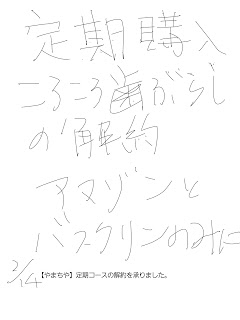 定期購入
ころころ歯ぶらし
の解約
アマゾンと
バスクリンのみに
2/14
【やまちや】定期コースの解約を承りました。